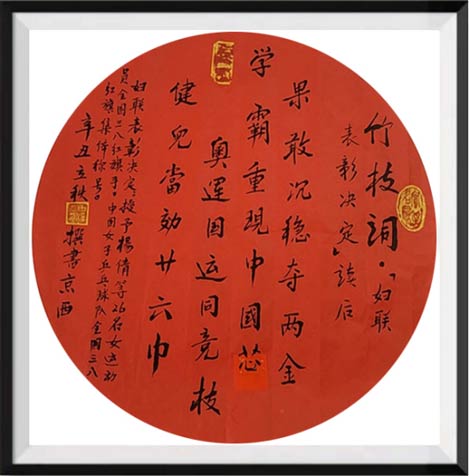 竹枝詞·「妇联
表彰决定」读后
果敢沉稳夺两金
学霸重現中國芯
奥運国运同竞技
健兒當効廿六巾
妇联表彰决定,授予楊倩等26名女运动
員全国三八红旗手,中国女子乒乓球队全国三八
红旗集体称号。
辛丑立秋 撰書京西